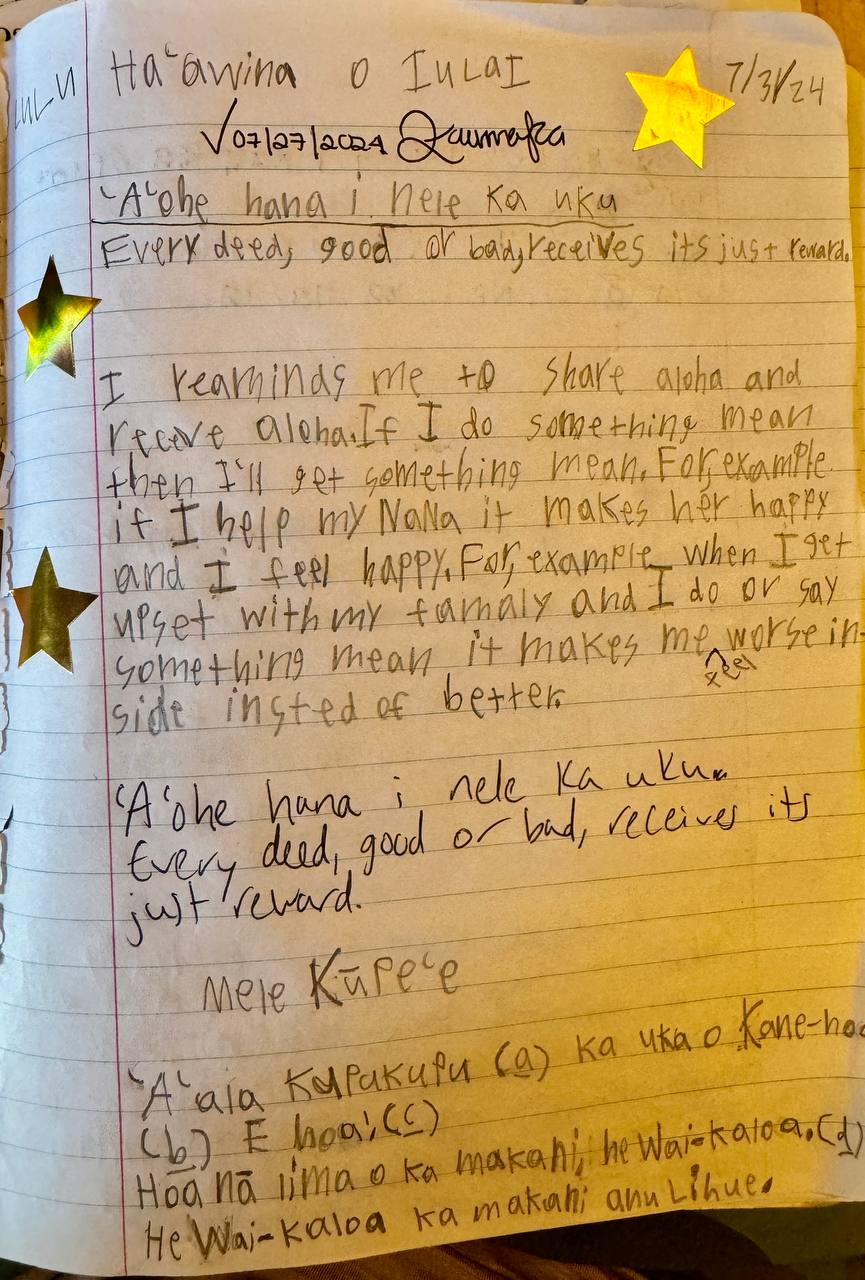 LULU
Ha‘awina o IULaI
7/31/24
√07/27/2024
‘A‘ohe hana i nele ka uku
Every deed, good or bad, receives its just reward.
I reaminds me to share aloha and
receve aloha. If I do something mean
then I'll get something mean. For, example
if I help my NaNa it makes her happy
and I feel happy. For, example when I get
upset with my famaly and I do or say
something mean it makes me feel worse in-
side insted of better.
‘A‘ohe hana i nele ka uku.
Every deed, good or bad, receives its
just reward.
Mele Kūpe‘e
‘A‘ala Kupukupu (a) ka uka o Kane-hoa
(b) E hoa!, (c)
Hoa nā lima o ka makani, he Wai-kaloa. (d)
He Wai-kaloa ka makani anu Lihue.